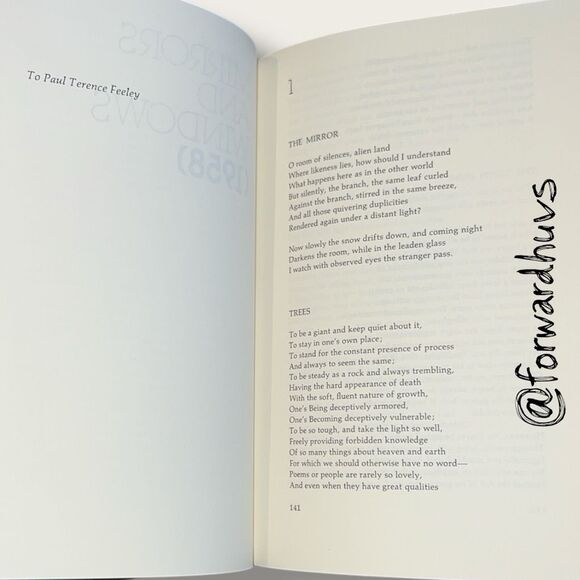 To Paul Terence Feeley
MIRRORS
AND
WINDOWS
(1958)
1
THE MIRROR
O room of silences, alien land
Where likeness lies, how should I understand
What happens here as in the other world
But silently, the branch, the same leaf curled
Against the branch, stirred in the same breeze,
And all those quivering duplicities
Rendered again under a distant light?
Now slowly the snow drifts down, and coming night
Darkens the room, while in the leaden glass
I watch with observed eyes the stranger pass.
TREES
To be a giant and keep quiet about it,
To stay in one's own place;
To stand for the constant presence of process
And always to seem the same;
To be steady as a rock and always trembling,
Having the hard appearance of death
With the soft, fluent nature of growth,
One's Being deceptively armored,
One's Becoming deceptively vulnerable;
To be so tough, and take the light so well,
Freely providing forbidden knowledge
Of so many things about heaven and earth
For which we should otherwise have no word—
Poems or people are rarely so lovely,
And even when they have great qualities
141
@forwardhuvs